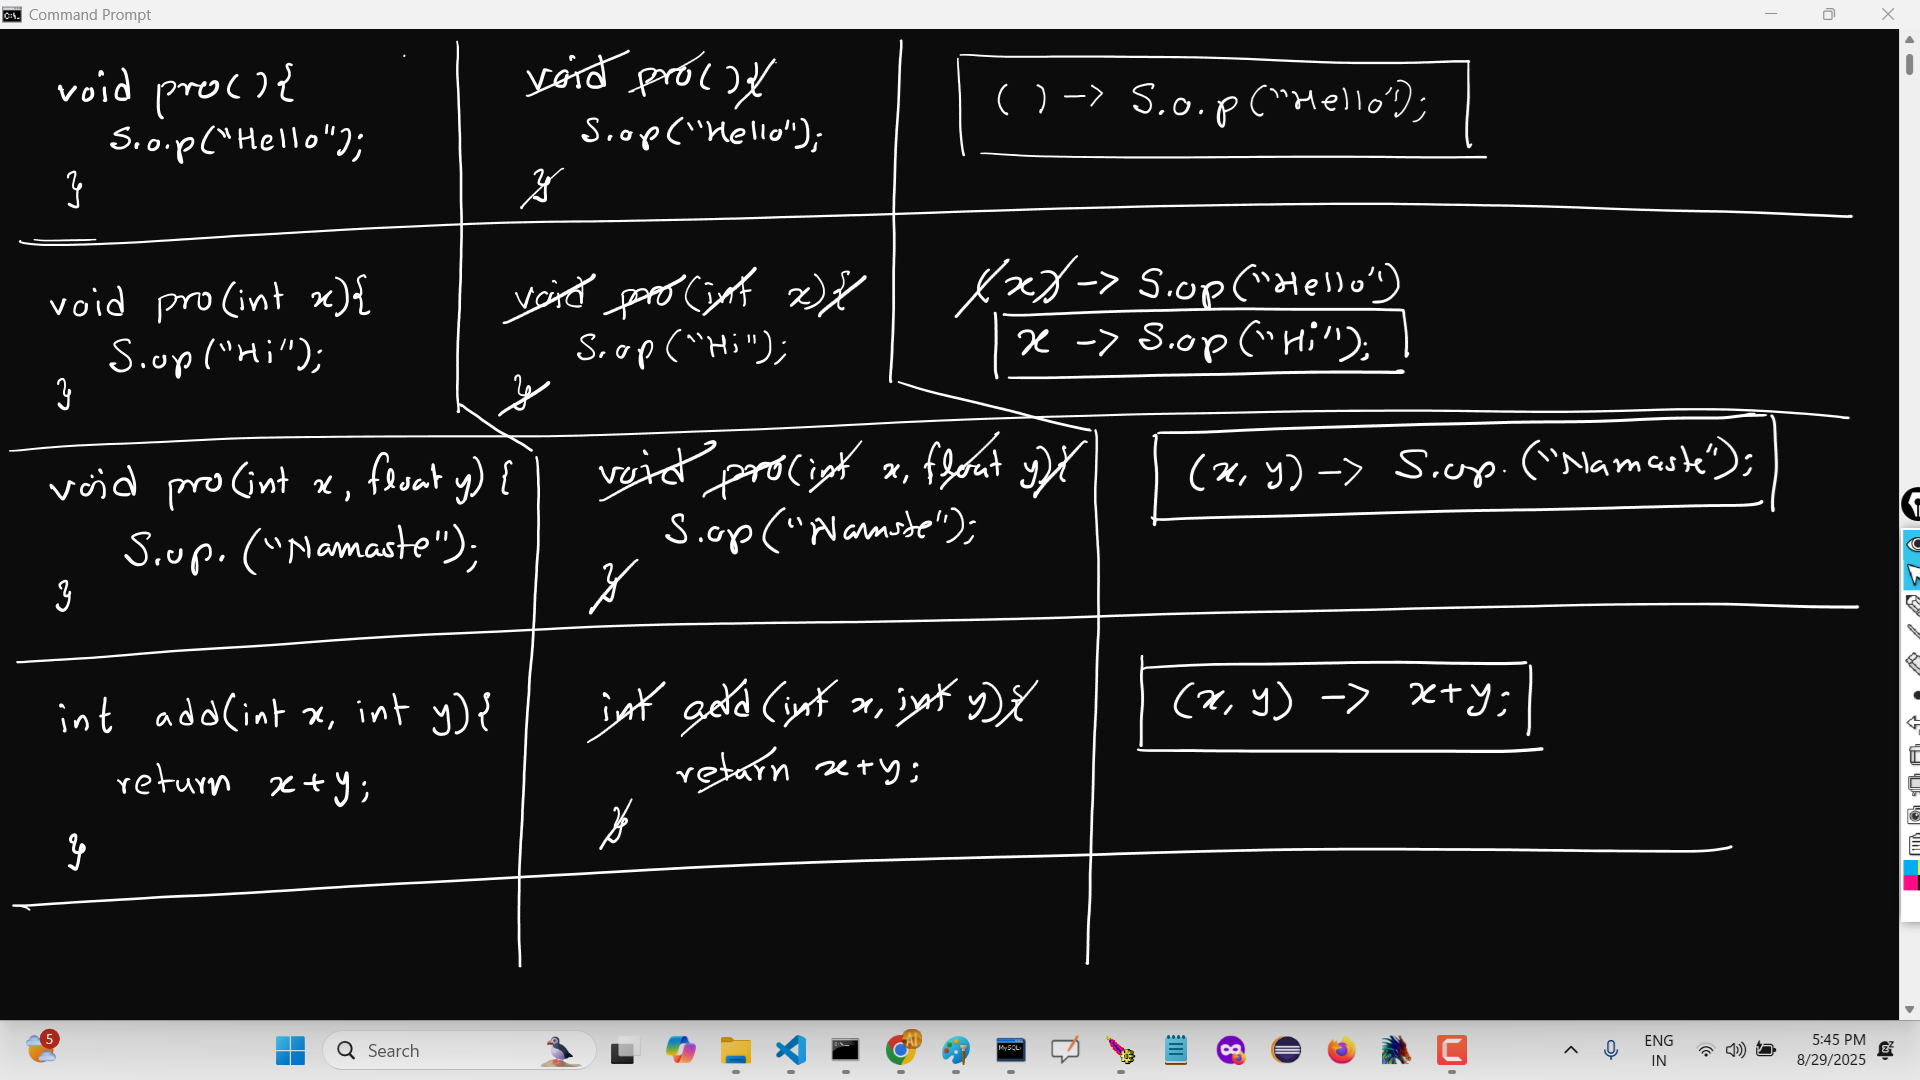 Command Prompt
void pro(){
S.o.p("Hello");
}
void pro(){
S.op("Hello");
}
( ) -> S.o.p("Hello");
void pro(int x){
S.op("Hi");
}
void pro(int x){
S.op("Hi");
}
(x) -> S.op("Hello")
x -> S.op("Hi");
void pro(int x, float y) {
S.op.("Namaste");
}
void pro(int x, float y){
S.op("Namste");
}
(x, y) -> S.op.("Namaste");
int add(int x, int y){
return x+y;
}
int add(int x, int y){
return x+y;
}
(x, y) -> x+y;
5
Search
ENG
IN
5:45 PM
8/29/2025